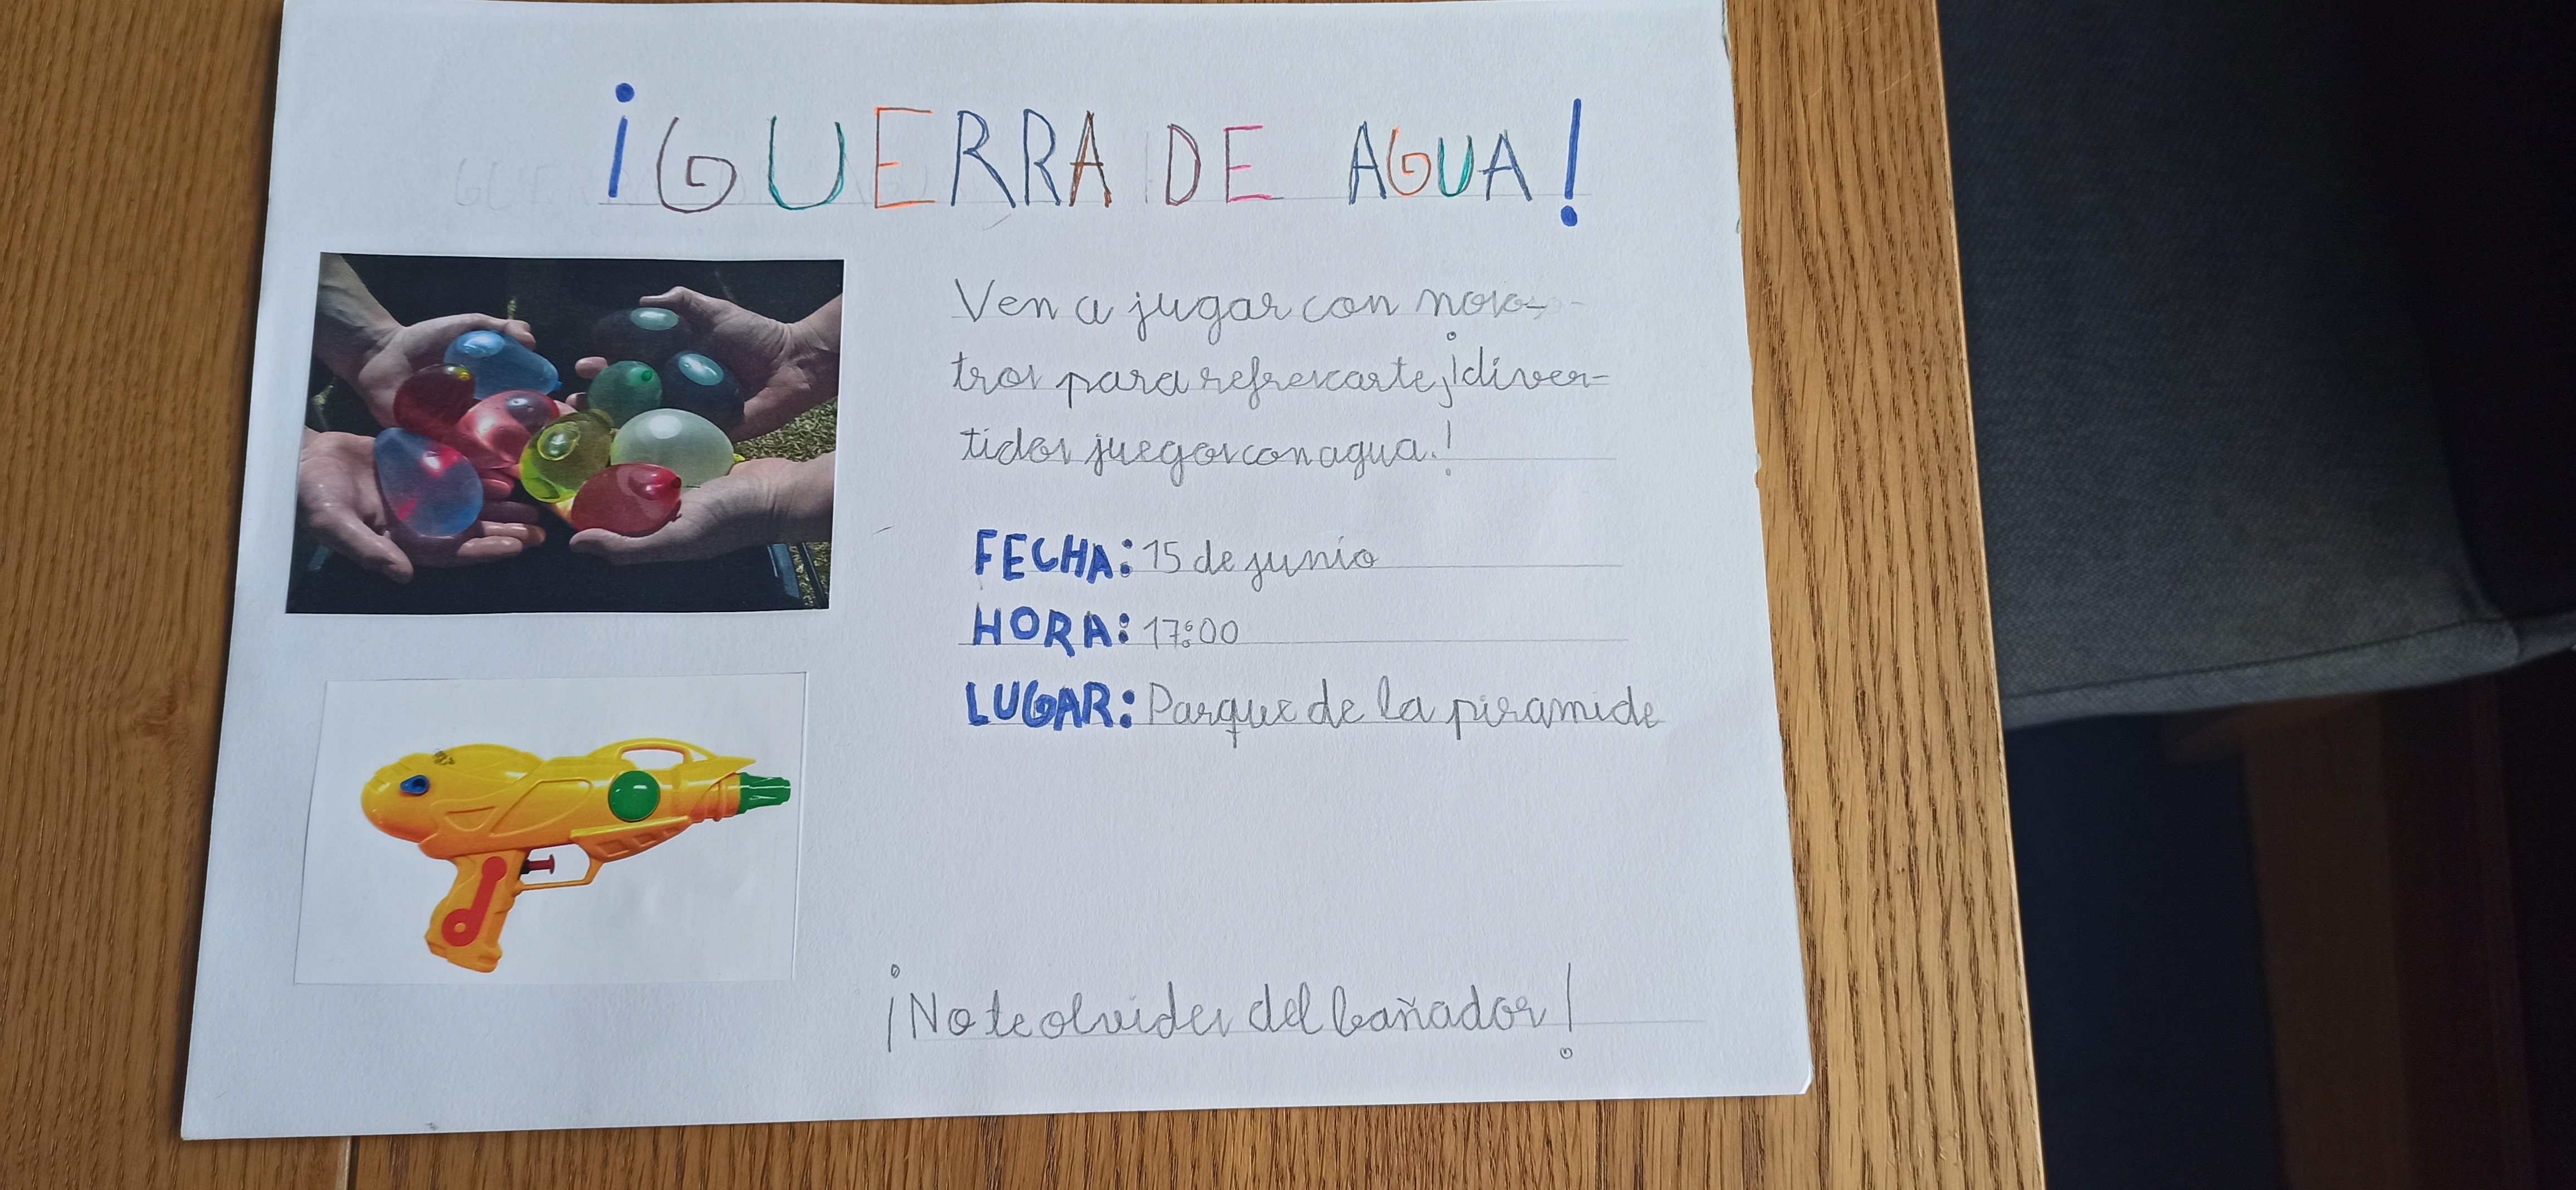 ¡GUERRA DE AGUA!
Ven a jugar con noso-
tros para refrescarte, ¡diver-
tidos juegos con agua.!
FECHA: 15 de junio
HORA: 17:00
LUGAR: Parque de la piramide
¡No te olvides del bañador!